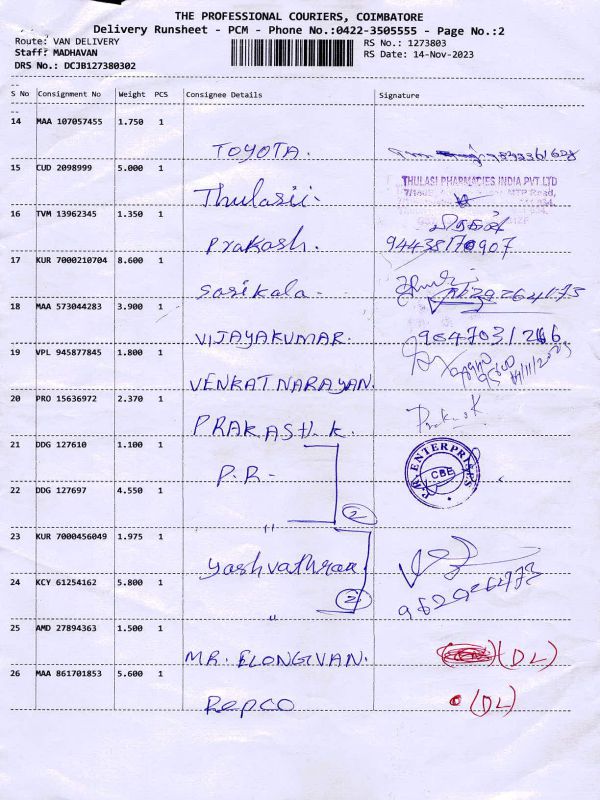 THE PROFESSIONAL COURIERS, COIMBATORE
Delivery Runsheet - PCM - Phone No.:0422-3505555 - Page No.:2
Route: VAN DELIVERY RS No.: 1273803
Staff: MADHAVAN RS Date: 14-Nov-2023
DRS No.: DCJB127380302
S No Consignment No Weight PCS Consignee Details Signature
14 MAA 107057455 1.750 1
TOYOTA.
15 CUD 2098999 5.000 1
THULASI PHARMACIES INDIA PVT LTD
Thulasii
16 TVM 13962345 1.350 1
Prakash. 94438170907
17 KUR 7000210704 8.600 1
Sasikala
18 MAA 573044283 3.900 1
VIJAYAKUMAR.
19 VPL 945877845 1.800 1
VENKATNARAYAN.
20 PRO 15636972 2.370 1
PRAKASH.K. Prakash K
21 DDG 127610 1.100 1
ENTERPRISES
CBE
P.R-
22 DDG 127697 4.550 1
2
"
23 KUR 7000456049 1.975 1
24 KCY 61254162 5.800 1
2
"
25 AMD 27894363 1.500 1
MR. ELONGIVAN. (DL)
26 MAA 861701853 5.600 1
Repco (DL)